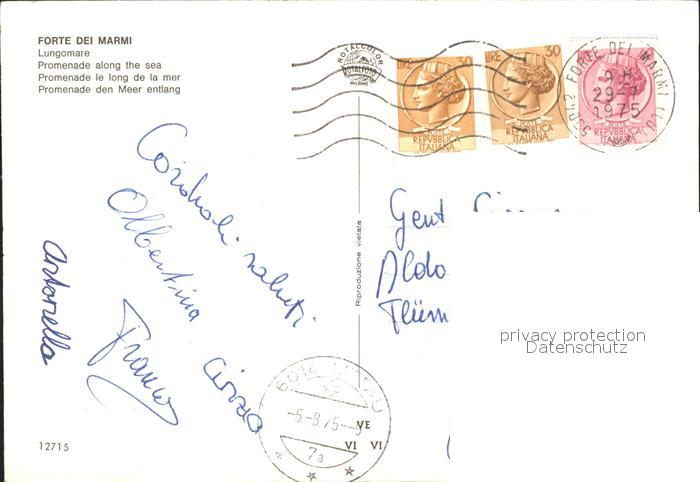 FORTE DEI MARMI
Lungomare
Promenade along the sea
Promenade le long de la mer
Promenade den Meer entlang
ROTALCOLOR
ROTALFOTO
MILANO
LIRE 30
POSTE
REPVBBLICA
ITALIANA
LIRE 30
POSTE
REPVBBLICA
ITALIANA
REPVBBLICA
ITALIANA
55042 FORTE DEI MARMI (LU)
9 H
29-7
1975
Cordiali saluti
Albertina
Franco
Antonella
Riproduzione vietata
Gent
Aldo
Flüm
privacy protection
Datenschutz
6014
-5-8.75--9
7a
VE
VI VI
12715